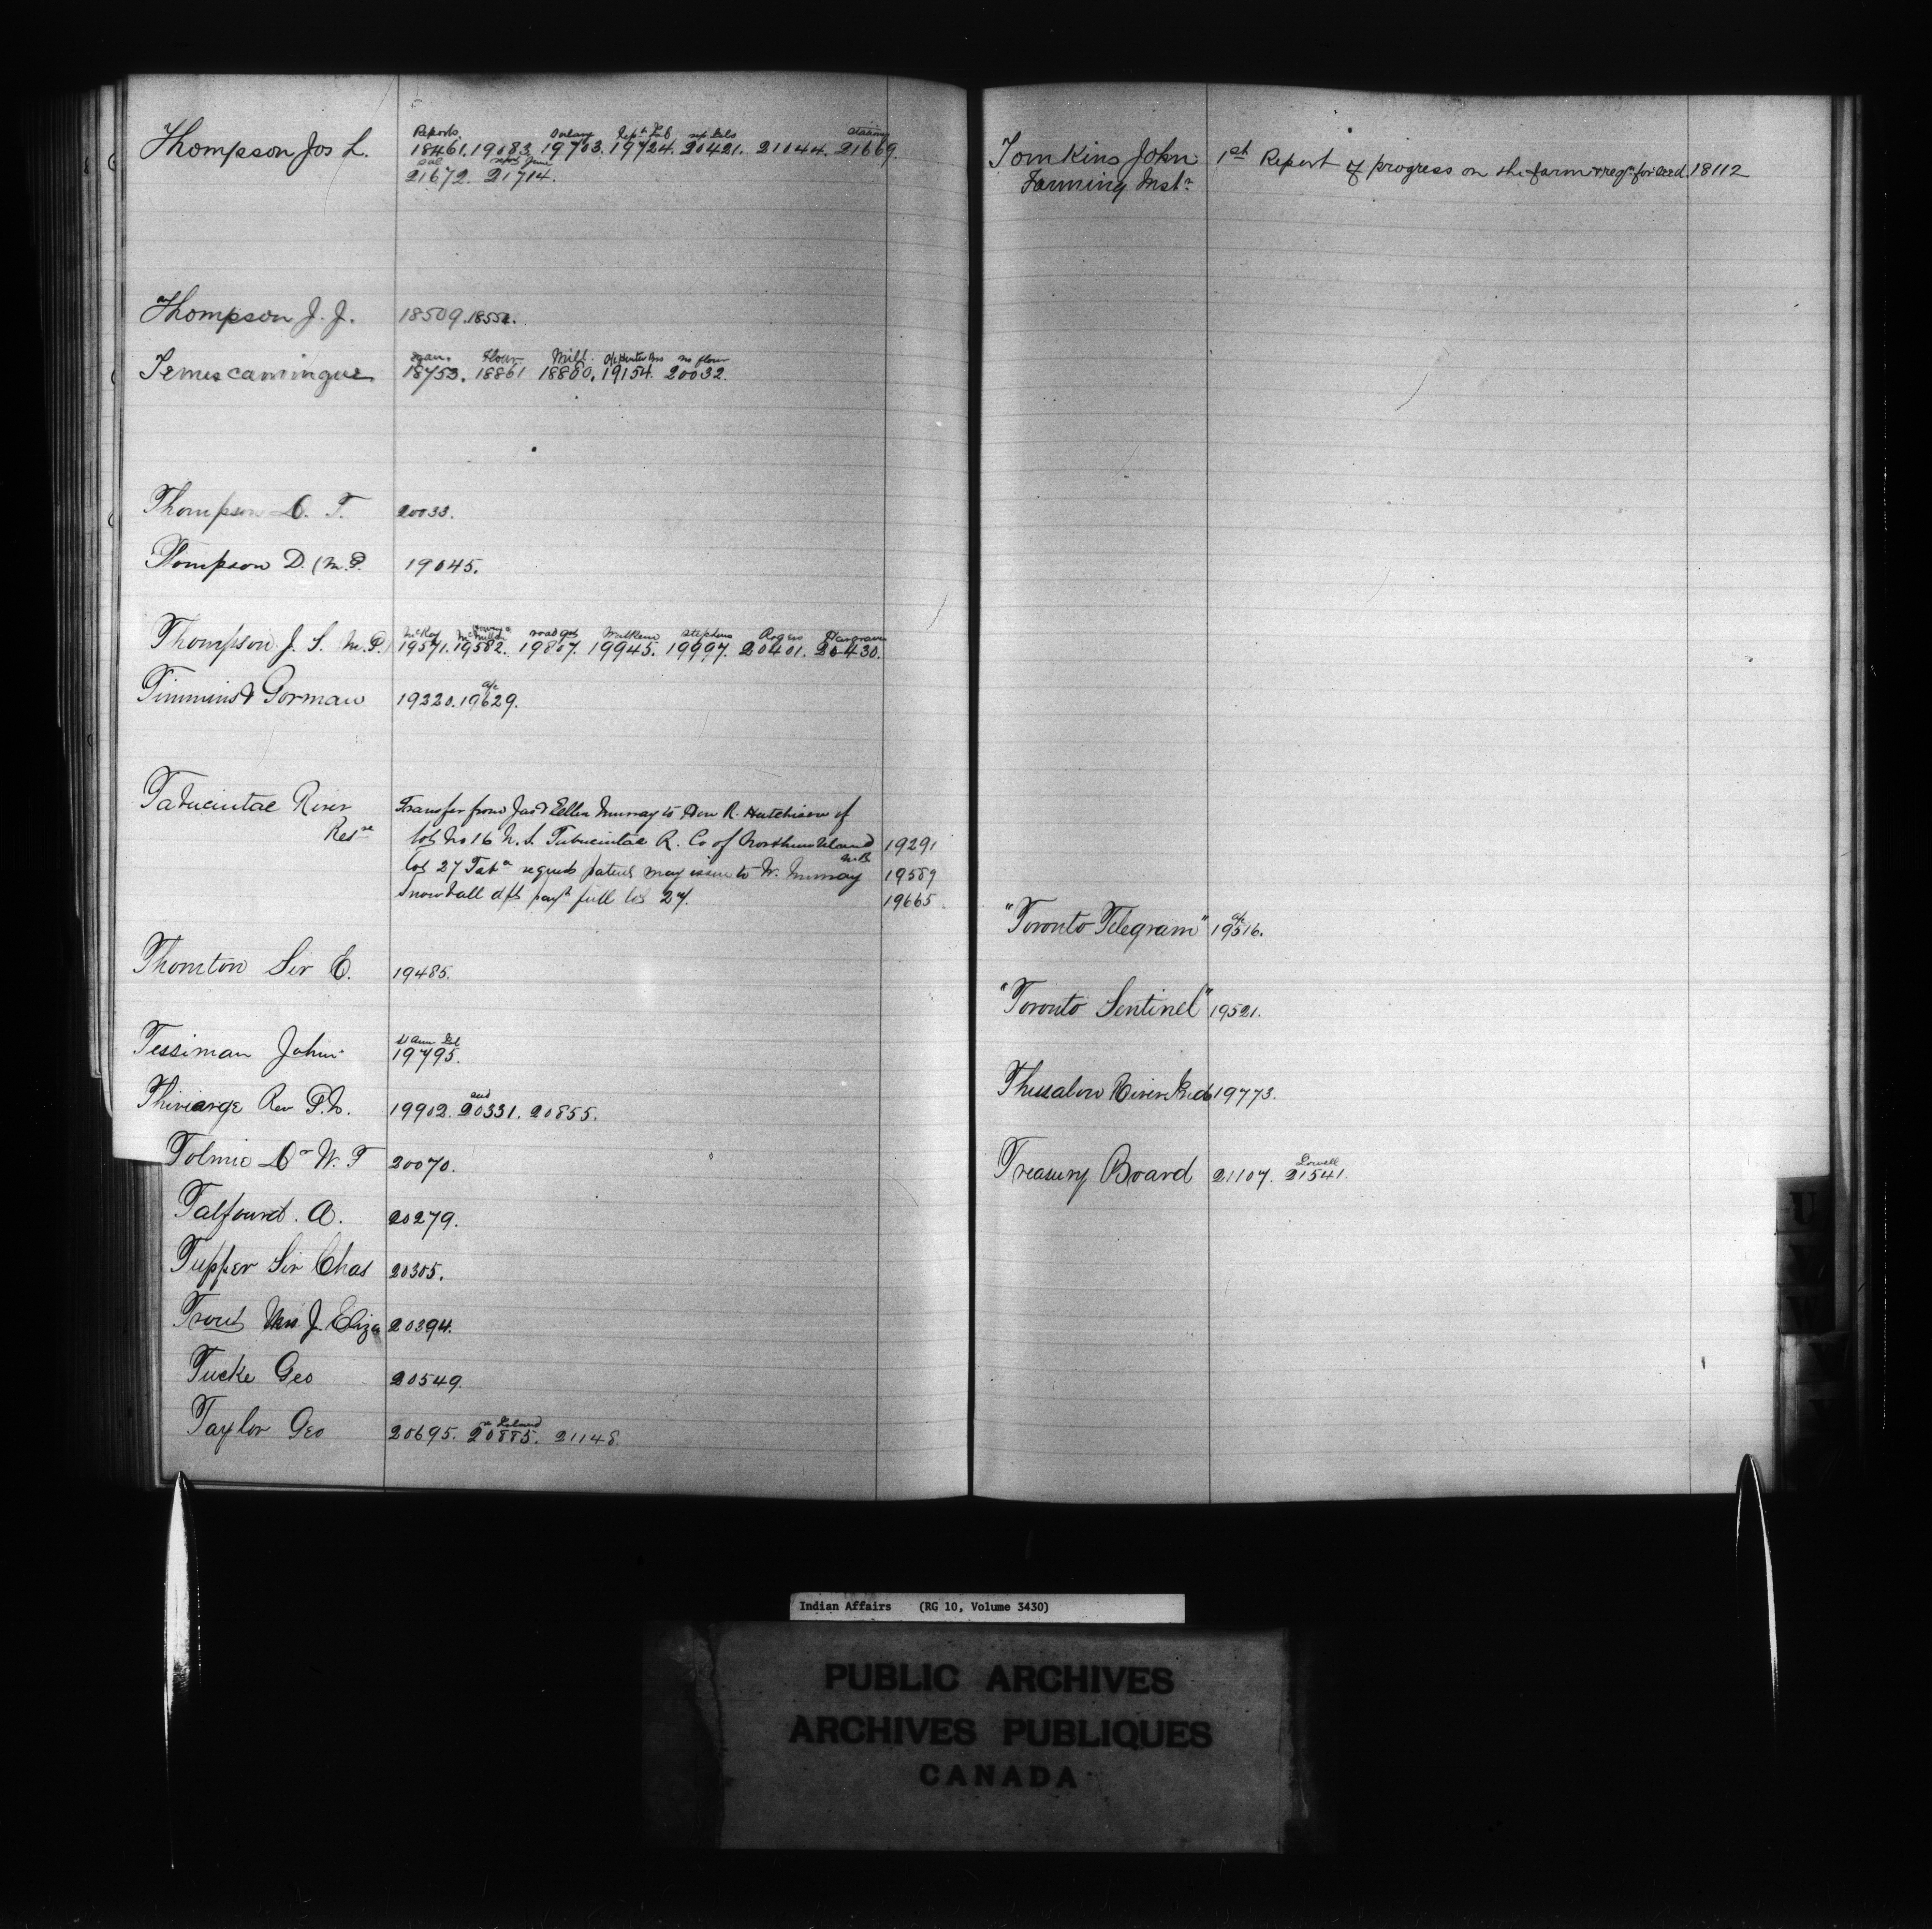 Thompson Jos L.
Reports Salary Sept Feb stationy
18461. 19083. 19703. 19724. 20421. 21044. 21669.
Sal rept June
21672. 21714.
Thompson J. J. 18509. 18552.
Flour Mill a/c no flour
Temiscamingue 18753. 18861 18880. 19154. 20032.
Thompson D. T. 20033.
Thompson D. (M.P. 19045.
McKay McMillan road Stephens Rogers Hargrave
Thompson J. S. M.P.) 19571. 19582. 19807. 19945. 19997. 20401. 20430.
a/c
Timmins & Gorman 19220. 19629.
Tabucintac River
Resve
Transfer from Jas & Ellen Murray to Hon R. Hutchison of
lot No 16 N. S. Tabucintac R. Co of Northumberland 19291
N.B.
lot 27 Tabc requests patent may issue to W. Murray 19589
Snowball dft payt full lot 27. 19665
Thornton Sir E. 19485.
Tessiman John 19795.
and
Thiviarge Rev P.N. 19902. 20331. 20855.
Tolmie Dr W. F 20070.
Talfourd. A. 20279.
Tupper Sir Chas 20305.
Trout Mrs J. Eliza 20394.
Tucke Geo 20549.
Island
Taylor Geo 20695. 20885. 21148.
Tomkins John
Farming Instr
1st Report of progress on the farm & reqn for seed. 18112
a/c
"Toronto Telegram" 19516.
"Toronto Sentinel" 19521.
Thessalon River 19773.
Lowell
Treasury Board 21107. 21541.
U
V
W
Y
Indian Affairs (RG 10, Volume 3430)
PUBLIC ARCHIVES
ARCHIVES PUBLIQUES
CANADA